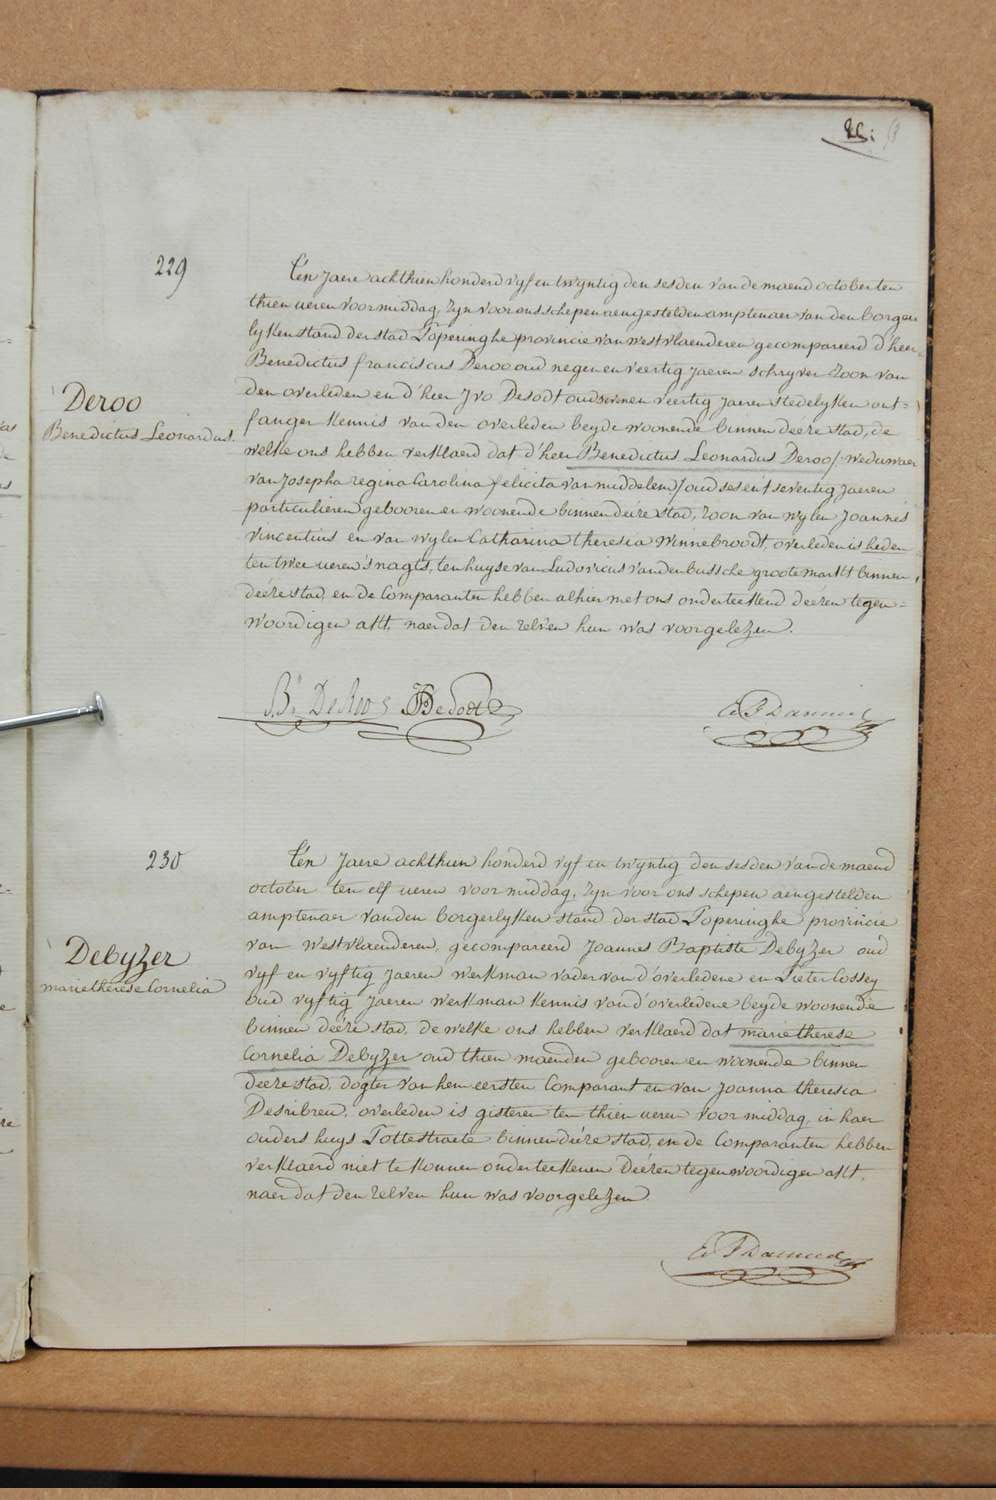 229
Ten Jaere achthien honderd vyf en twyntig den sesden van de maend october ten
thien ueren voormiddag, zyn voor ons schepen aengestelden amptenaer van den borger
lyken stand der stad Poperinghe provincie van westvlaenderen gecompareerd d'heer
Benedictus franciscus Deroo oud negen en veertig Jaeren schryver zoon van
den overleden en d'heer Jvo Desodt oud sevenen veertig Jaeren stedelyken ont=
fanger kennis van den overleden beyde woonende binnen deéze stad, de
welke ons hebben verklaerd dat d'heer Benedictus Leonardus Deroo / weduwaer
van Josepha regina Carolina felicita van middelem / oud ses en t'seventig Jaeren
particulieren gebooren en woonende binnen deéze stad, zoon van wylen Joannes
vincentius en van wylen Catharina theresia Winnebroodt, overleden is heden
ten twee ueren s'nagts, ten huyse van Ludovicus Vandenbussche groote markt binnen
deéze stad, en de Comparanten hebben alhier met ons onderteekend deézen tegen=
woordigen akt, naer dat den zelven hun was voorgelezen.
Deroo
Benedictus Leonardus.
Bs. DeRoo JDesodt
230
Ten Jaere achthien honderd vyf en twyntig den sesden van de maend
october ten elf ueren voormiddag, zyn voor ons schepen aengestelden
amptenaer van den borgerlyken stand der stad Poperinghe provincie
van westvlaenderen, gecompareerd Joannes Baptiste Debyzer oud
vyf en vyftig Jaeren werkman vader van d'overledene en Pieter Cossey
oud vyftig Jaeren werkman kennis van d'overledene beyde woonende
binnen deéze stad, de welke ons hebben verklaerd dat marie therese
Cornelia Debyzer oud thien maenden gebooren en woonende binnen
deéze stad, dogter van hem eersten Comparant en van Joanna theresia
overleden is gisteren ten thien ueren voormiddag, in haer
ouders huys Pottestraete binnen deéze stad, en de Comparanten hebben
verklaerd niet te konnen onderteekenen deézen tegenwoordigen akt,
naer dat den zelven hun was voorgelezen
Debyzer
marie therese Cornelia